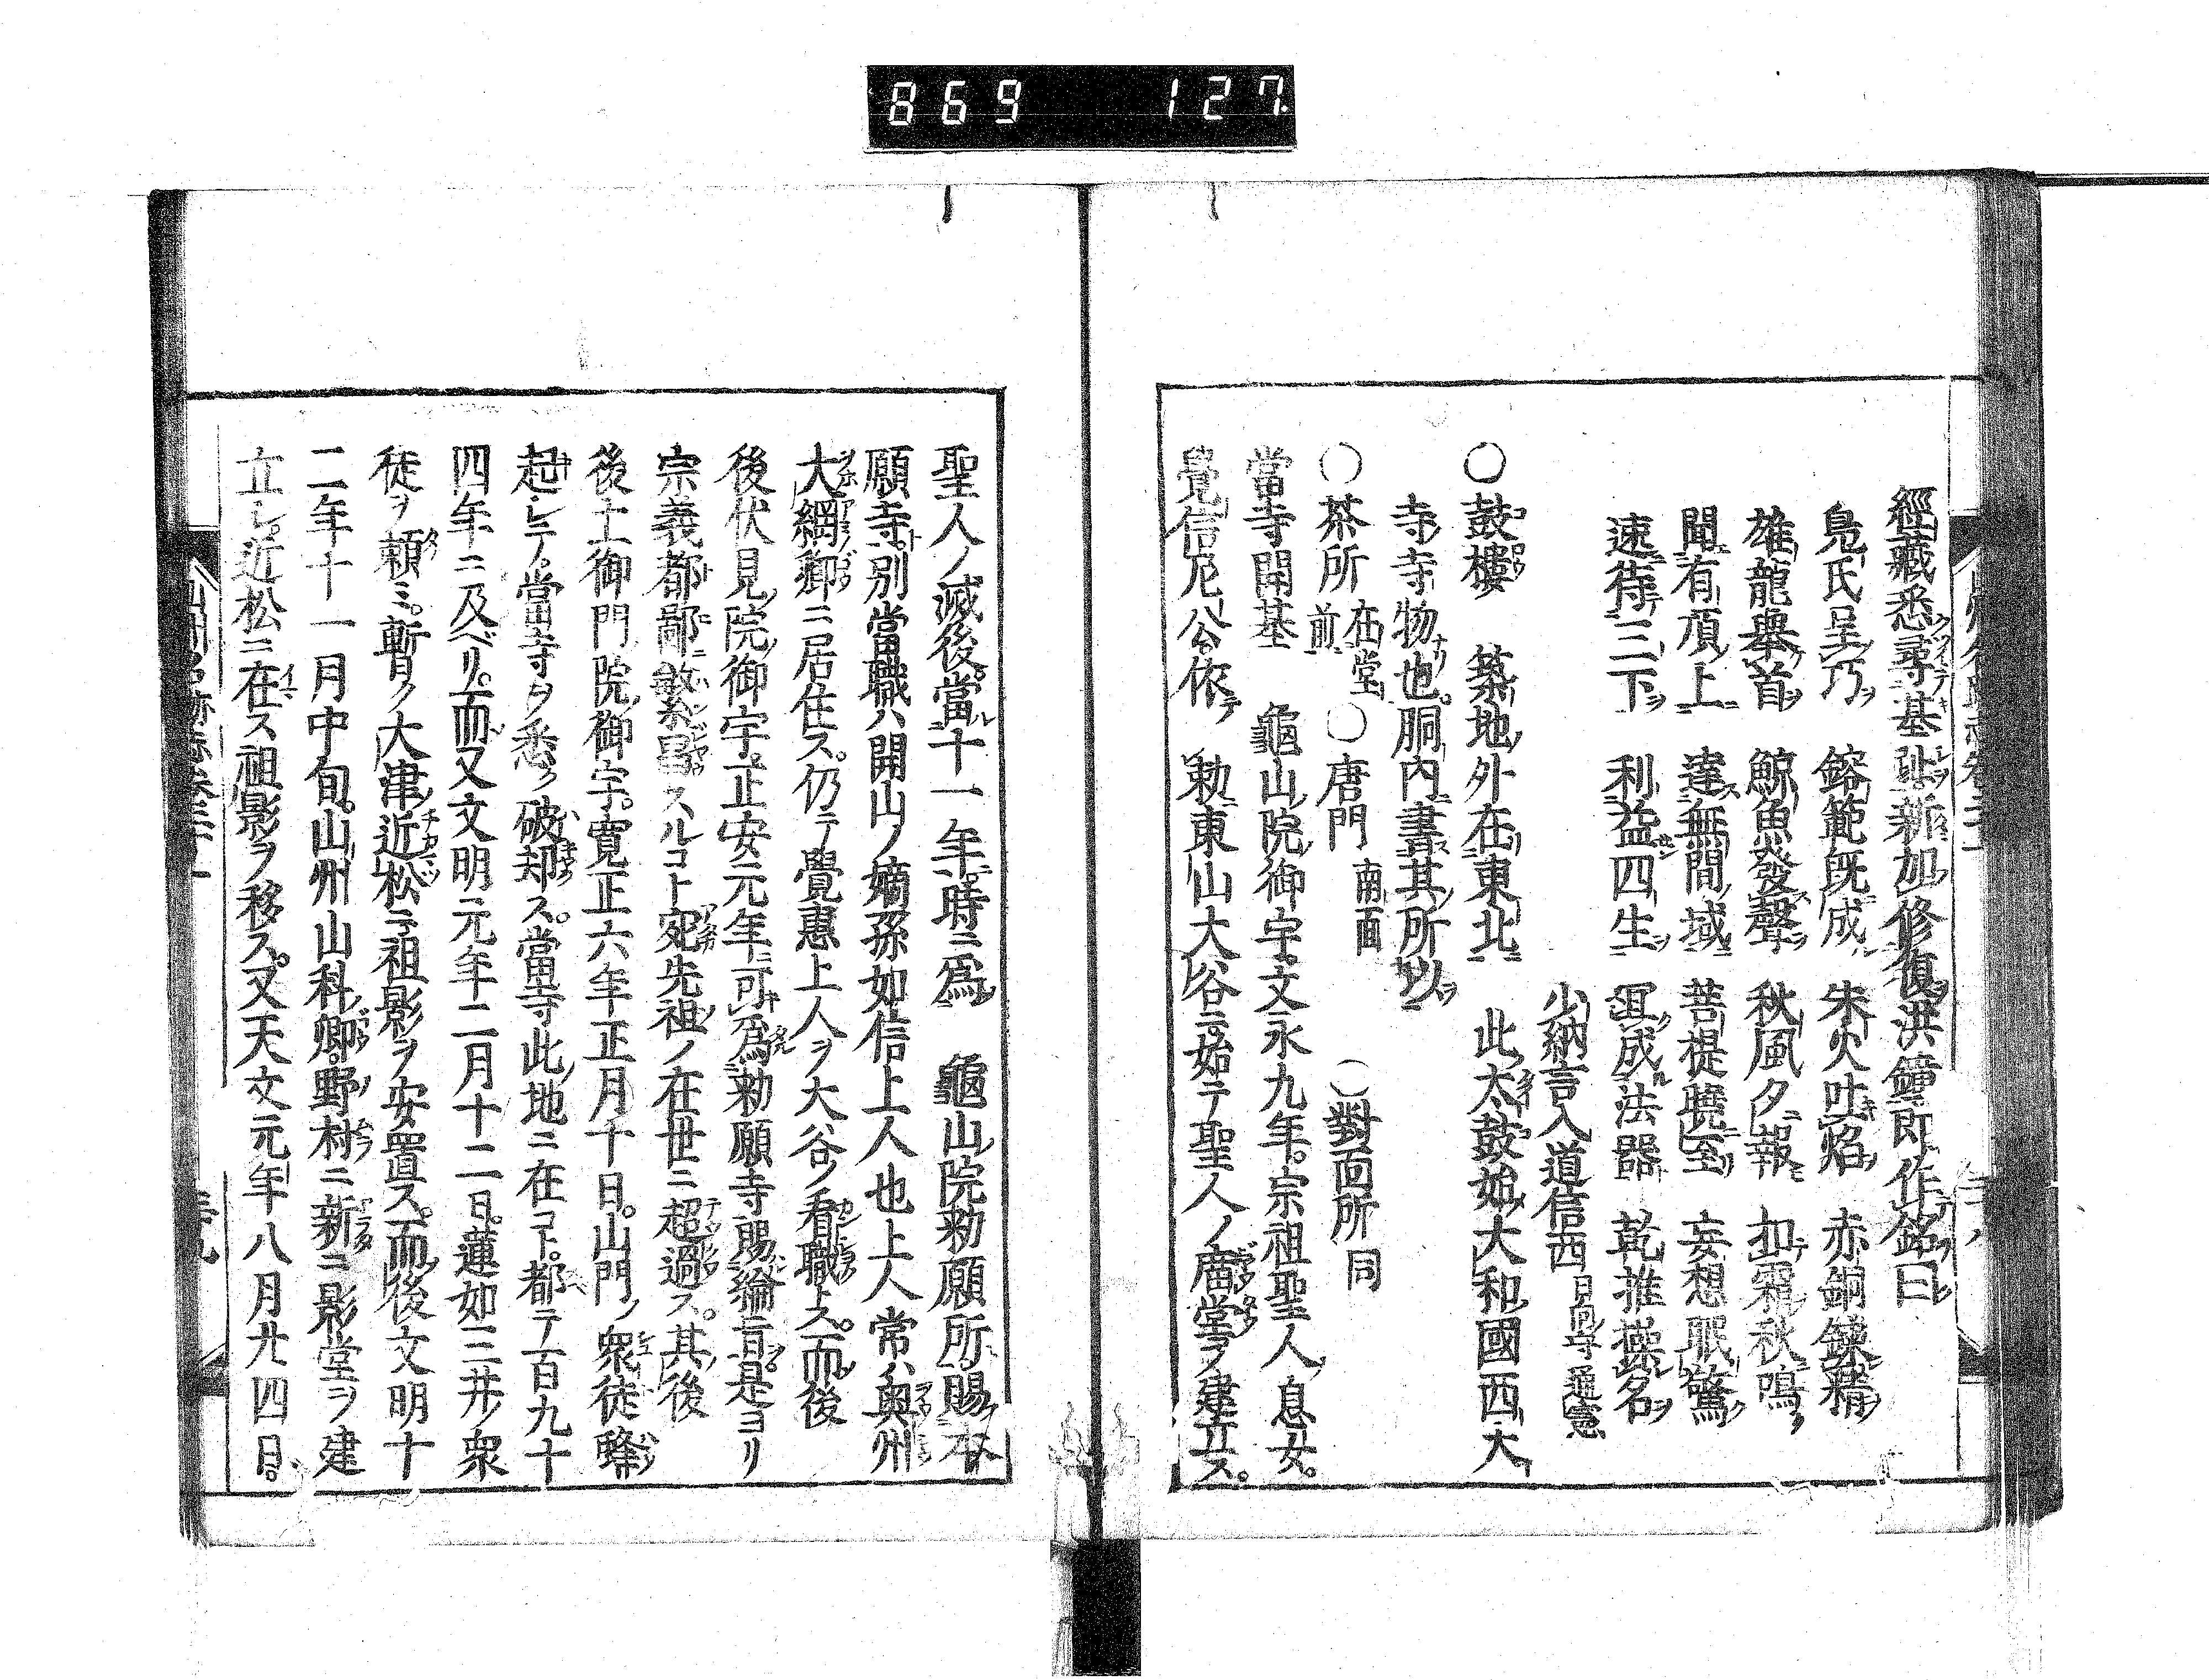 869 127
經藏悉尋基趾新加修復洪鐘即作銘曰
鳧氏呈巧 鎔範既成 朱火吐焰 赤銅錬精
雄龍擧首 鯨魚發聲 秋風夕報 扣霜秋鳴
聞有頂上 達無間域 菩提曉至 妄想眠驚
速待三下 利益四生 逕成法器 乾推操名
少納言入道信西 日向守通憲
〇鼓樓 築地外在東北 此太鼓始大和國西大
寺寺物也。胴内書其所以
〇茶所 在堂前 〇唐門 南面 〇對面所 同
當寺開基 龜山院御宇。文永九年。宗祖聖人息女。
覺信尼公。依 勅東山大谷ニ。始テ聖人ノ庿堂ヲ建立ス。
聖人ノ滅後。當十一年。時ニ爲 龜山院勅願所。賜本
願寺。別當職ハ開山ノ嫡孫如信上人也上人常ハ奥州
大綱郷ニ居住ス。仍テ覺惠上人ヲ大谷ノ看職トス。而後
後伏見院御宇。正安元年可爲勅願寺賜綸旨。是ヨリ
宗義都鄙敏繁昌スルコト宛先祖ノ在世ニ超過ス。其後
後土御門院御宇。寛正六年正月十日。山門ノ衆徒蜂
起シテ。當寺タ悉ク破却ス。當寺此地ニ在コト。都テ一百九十
四年ニ及ベリ。而又文明元年二月十二日。蓮如三井衆
徒ヲ頼ミ。暫ク大津近松ニ祖影ヲ安置ス。而後文明十
二年十一月中旬。山州山科卿。野村ニ新ニ影堂ヲ建
立シ。近松ニ在ス祖影ヲ移ス。又天文元年八月廿四日。